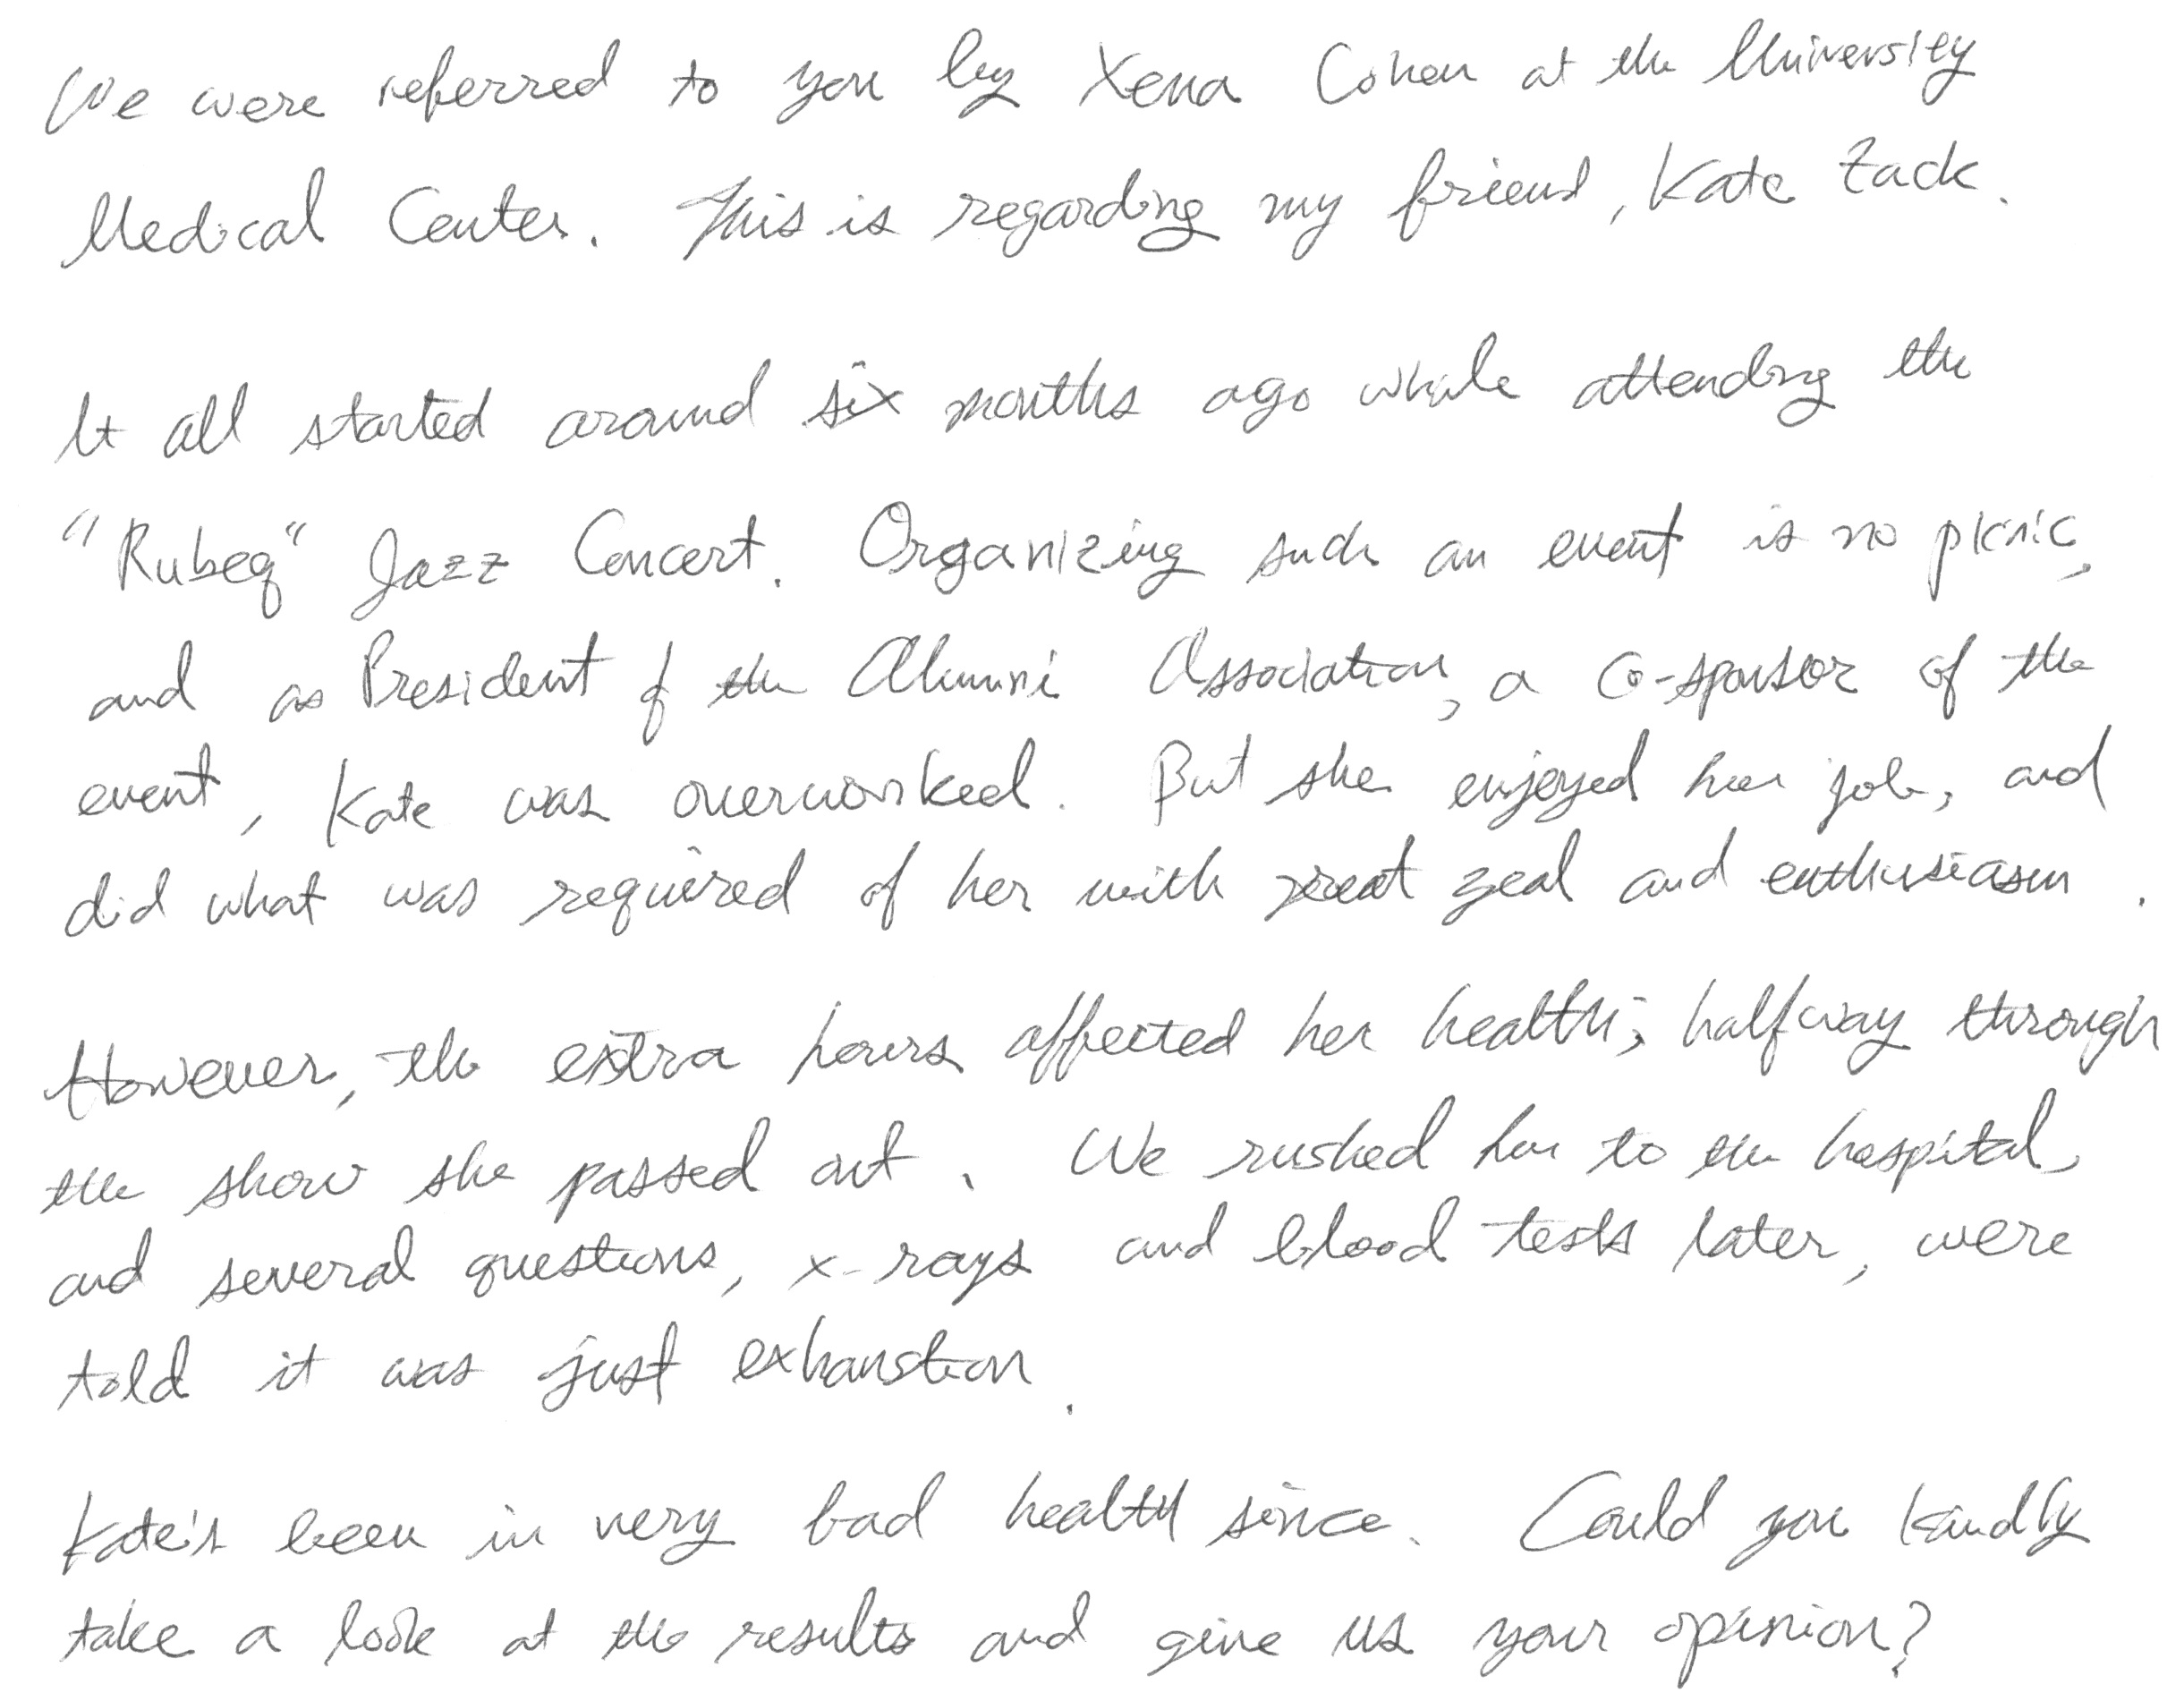 We were referred to you by Xena Cohen at the University
Medical Center. This is regarding my friend, Kate Zack.
It all started around six months ago while attending the
"Rubeq" Jazz Concert. Organizing such an event is no picnic,
and as President of the Alumni Association, a co-sponsor of the
event, Kate was overworked. But she enjoyed her job, and
did what was required of her with great zeal and enthusiasm.
However, the extra hours affected her health; halfway through
the show she passed out. We rushed her to the hospital,
and several questions, x-rays and blood tests later, were
told it was just exhaustion.
Kate's been in very bad health since. Could you kindly
take a look at the results and give us your opinion?